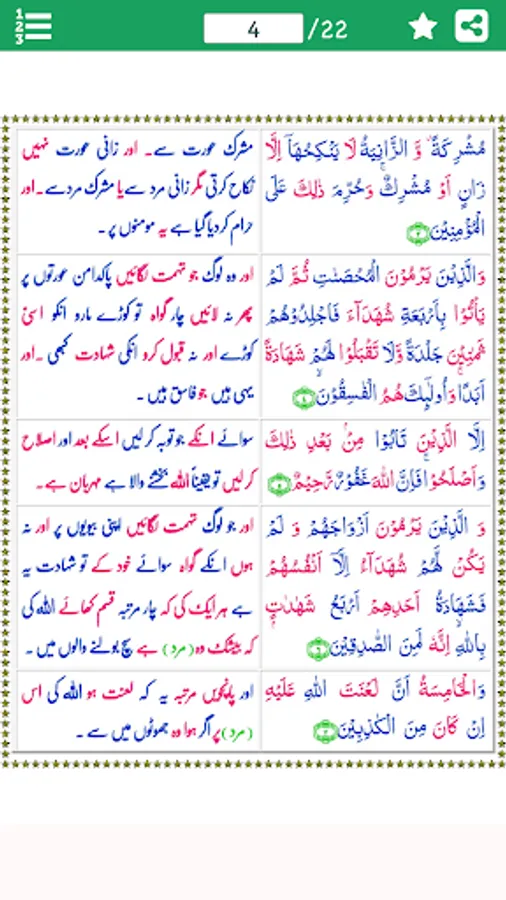 1
2
3
4 /22
مُشْرِكَةً ۫ وَّ الزَّانِيَةُ لَا يَنْكِحُهَاۤ اِلَّا
زَانٍ اَوْ مُشْرِكٌ ۚ وَحُرِّمَ ذٰلِكَ عَلَى
الْمُؤْمِنِيْنَ ۳
مشرک عورت سے۔ اور زانی عورت نہیں
نکاح کرتی مگر زانی مرد سے یا مشرک مرد سے۔ اور
حرام کر دیا گیا ہے یہ مومنوں پر۔
وَالَّذِيْنَ يَرْمُوْنَ الْمُحْصَنٰتِ ثُمَّ لَمْ
يَاْتُوْا بِاَرْبَعَةِ شُهَدَآءَ فَاجْلِدُوْهُمْ
ثَمٰنِيْنَ جَلْدَةً وَّلَا تَقْبَلُوْا لَهُمْ شَهَادَةً
اَبَدًا ۚ وَاُولٰٓئِكَ هُمُ الْفٰسِقُوْنَ ۙ ۴
اور وہ لوگ جو تہمت لگائیں پاکدامن عورتوں پر
پھر نہ لائیں چار گواہ تو کوڑے مارو انکو اسّی
کوڑے اور نہ قبول کرو انکی شہادت کبھی۔ اور
یہی ہیں جو فاسق ہیں۔
اِلَّا الَّذِيْنَ تَابُوْا مِنْۢ بَعْدِ ذٰلِكَ
وَاَصْلَحُوْا ۚ فَاِنَّ اللّٰهَ غَفُوْرٌ رَّحِيْمٌ ۵
سوائے انکے جو توبہ کر لیں اسکے بعد اور اصلاح
کر لیں تو یقیناً اللہ بخشنے والا ہے مہربان ہے۔
وَ الَّذِيْنَ يَرْمُوْنَ اَزْوَاجَهُمْ وَ لَمْ
يَكُنْ لَّهُمْ شُهَدَآءُ اِلَّاۤ اَنْفُسُهُمْ
فَشَهَادَةُ اَحَدِهِمْ اَرْبَعُ شَهٰدٰتٍۭ
بِاللّٰهِ ۙ اِنَّهٗ لَمِنَ الصّٰدِقِيْنَ ۶
اور جو لوگ تہمت لگائیں اپنی بیویوں پر اور نہ
ہوں انکے گواہ سوائے خود کے تو شہادت یہ
ہے ہر ایک کی کہ چار مرتبہ قسم کھائے اللہ کی
کہ بیشک وہ (مرد) ہے سچ بولنے والوں میں۔
وَالْخَامِسَةُ اَنَّ لَعْنَتَ اللّٰهِ عَلَيْهِ
اِنْ كَانَ مِنَ الْكٰذِبِيْنَ ۷
اور پانچویں مرتبہ یہ کہ لعنت ہو اللہ کی اس
(مرد) پر اگر ہوا وہ جھوٹوں میں سے۔